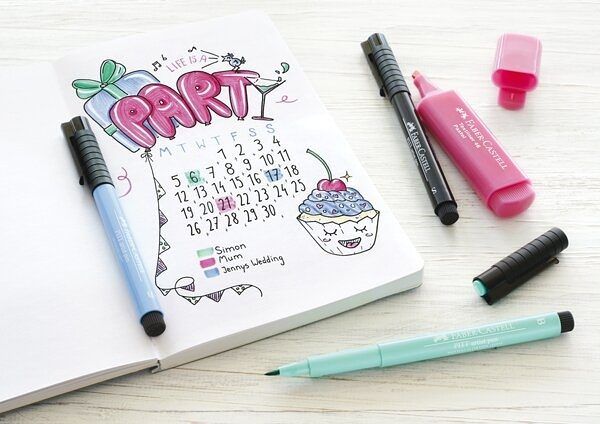 LIFE IS A
PARTY
M T W T F S S
1 2 3 4
5 6 7 8 9 10 11
12 13 14 15 16 17 18
19 20 21 22 23 24 25
26 27 28 29 30
Simon
Mum
Jennys Wedding
FABER-CASTELL
S
FABER-CASTELL
Textliner 46
Pastel
FABER-CASTELL
PITT artist pen
B